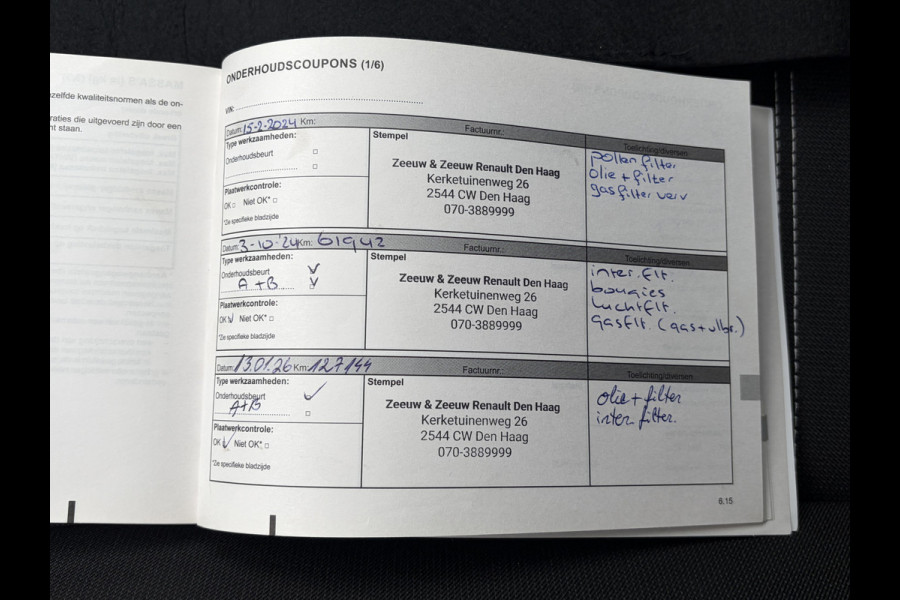 zelfde kwaliteitsnormen als de on-
raties die uitgevoerd zijn door een
nt staan.
ONDERHOUDSCOUPONS (1/6)
VIN:
Datum: 15-2-2024 Km: Factuurnr.:
Type werkzaamheden:
Onderhoudsbeurt
Plaatwerkcontrole:
OK Niet OK*
*Zie specifieke bladzijde
Stempel
Zeeuw & Zeeuw Renault Den Haag
Kerketuinenweg 26
2544 CW Den Haag
070-3889999
Toelichting/diversen
pollen filter
olie + filter
gasfilter verv
Datum: 3-10-'24 Km: 61942 Factuurnr.:
Type werkzaamheden:
Onderhoudsbeurt
A+B
Plaatwerkcontrole:
OK Niet OK*
*Zie specifieke bladzijde
Stempel
Zeeuw & Zeeuw Renault Den Haag
Kerketuinenweg 26
2544 CW Den Haag
070-3889999
Toelichting/diversen
inter.flt.
bougies
luchtflt.
gasflt. (gas+vlbr.)
Datum: 13.01.26 Km: 127144 Factuurnr.:
Type werkzaamheden:
Onderhoudsbeurt
A+B
Plaatwerkcontrole:
OK Niet OK*
*Zie specifieke bladzijde
Stempel
Zeeuw & Zeeuw Renault Den Haag
Kerketuinenweg 26
2544 CW Den Haag
070-3889999
Toelichting/diversen
olie + filter
inter. filter.
6.15